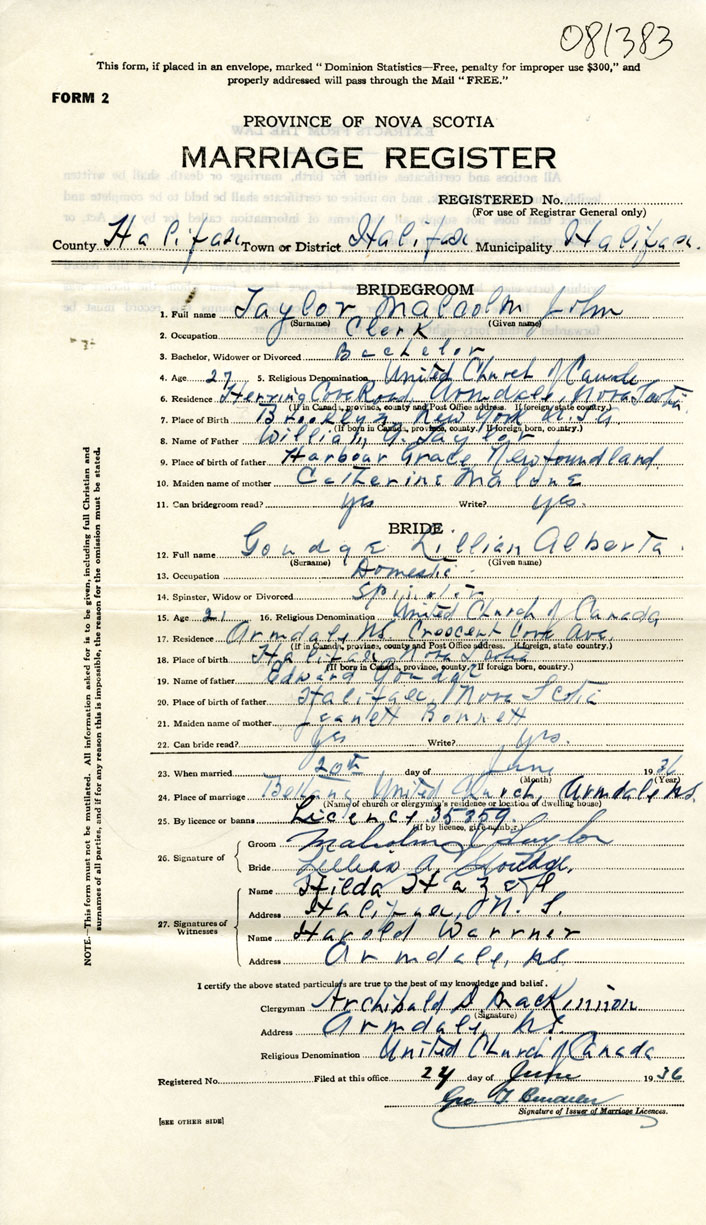 081383
This form, if placed in an envelope, marked "Dominion Statistics—Free, penalty for improper use $300," and
properly addressed will pass through the Mail "FREE."
FORM 2
PROVINCE OF NOVA SCOTIA
MARRIAGE REGISTER
REGISTERED No.
(For use of Registrar General only)
County Halifax Town or District Halifax Municipality Halifax.
BRIDEGROOM
1. Full name Taylor Malcolm John
(Surname) (Given name)
2. Occupation Clerk
3. Bachelor, Widower or Divorced Bachelor
4. Age 27 5. Religious Denomination United Church of Canada
6. Residence Herring Cove Road, Armdale, Nova Scotia
(If in Canada, province, county and Post Office address. If foreign, state country.)
7. Place of Birth Brooklyn, New York U.S.A
(If born in Canada, province, county. If foreign born, country.)
8. Name of Father William Taylor
9. Place of birth of father Harbour Grace Newfoundland
10. Maiden name of mother Catherine Malone
11. Can bridegroom read? yes Write? yes.
BRIDE
12. Full name Goudge Lillian Alberta.
(Surname) (Given name)
13. Occupation Domestic
14. Spinster, Widow or Divorced Spinster
15. Age 21 16. Religious Denomination United Church of Canada
17. Residence Armdale, NS. Crescent Cove Ave.
(If in Canada, province, county and Post Office address. If foreign, state country.)
18. Place of birth Halifax Nova Scotia
(If born in Canada, province, county. If foreign born, country.)
19. Name of father Edward Goudge
20. Place of birth of father Halifax, Nova Scotia
21. Maiden name of mother Bonnett
22. Can bride read? yes Write? yes.
23. When married 20th day of June 1936
(Month) (Year)
24. Place of marriage United Church, Armdale NS.
(Name of church or clergyman's residence or location of dwelling house)
25. By licence or banns Licence 35359.
(If by licence, give number)
26. Signature of Groom Malcolm J Taylor
Bride Lillian A. Goudge.
27. Signatures of Witnesses
Name Hilda
Address Halifax, N. S.
Name Harold Warrner
Address Armdale, NS
I certify the above stated particulars are true to the best of my knowledge and belief.
Clergyman Archibald D. MacKinnon
(Signature)
Address Armdale, NS.
Religious Denomination United Church of Canada
Registered No. Filed at this office 24 day of June 1936
Geo. T.
Signature of Issuer of Marriage Licences.
[SEE OTHER SIDE]
NOTE.—This form must not be mutilated. All information asked for is to be given, including full Christian and
surnames of all parties, and if for any reason this is impossible, the reason for the omission must be stated.